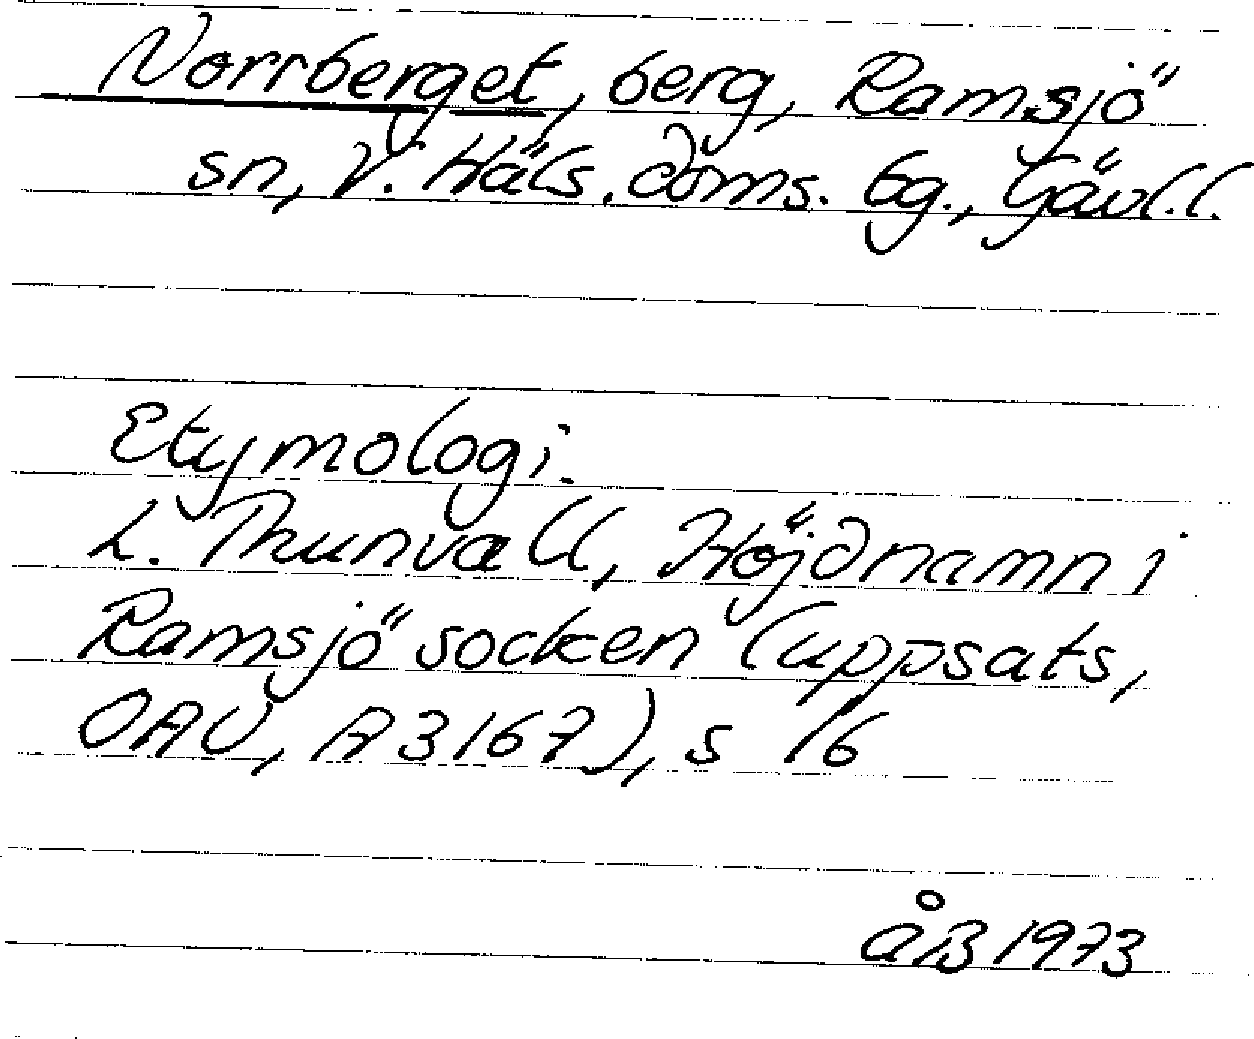 Norrberget, berg, Ramsjö
sn, V. Häls. doms. bg., Gävl.l.
Etymologi.
L. Thunvall, Höjdnamn i
Ramsjö socken (uppsats,
OAU, A 3167), s 16
åB 1973